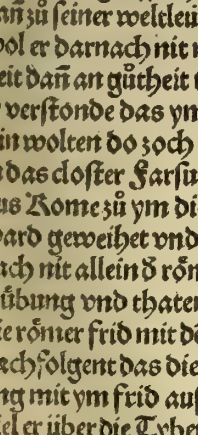 an zů seiner weltleu
ol er darnach nit
eit dañ an gůtheit
verstonde das ym
in wolten do zoch
das closter Farsu
us Rome zů ym di
ard geweihet vnd
ach nit allein d̄ rön
übung vnd thaten
e römer frid mit d
achfolgent das die
ng mit ym frid auf
el er über die Tyber